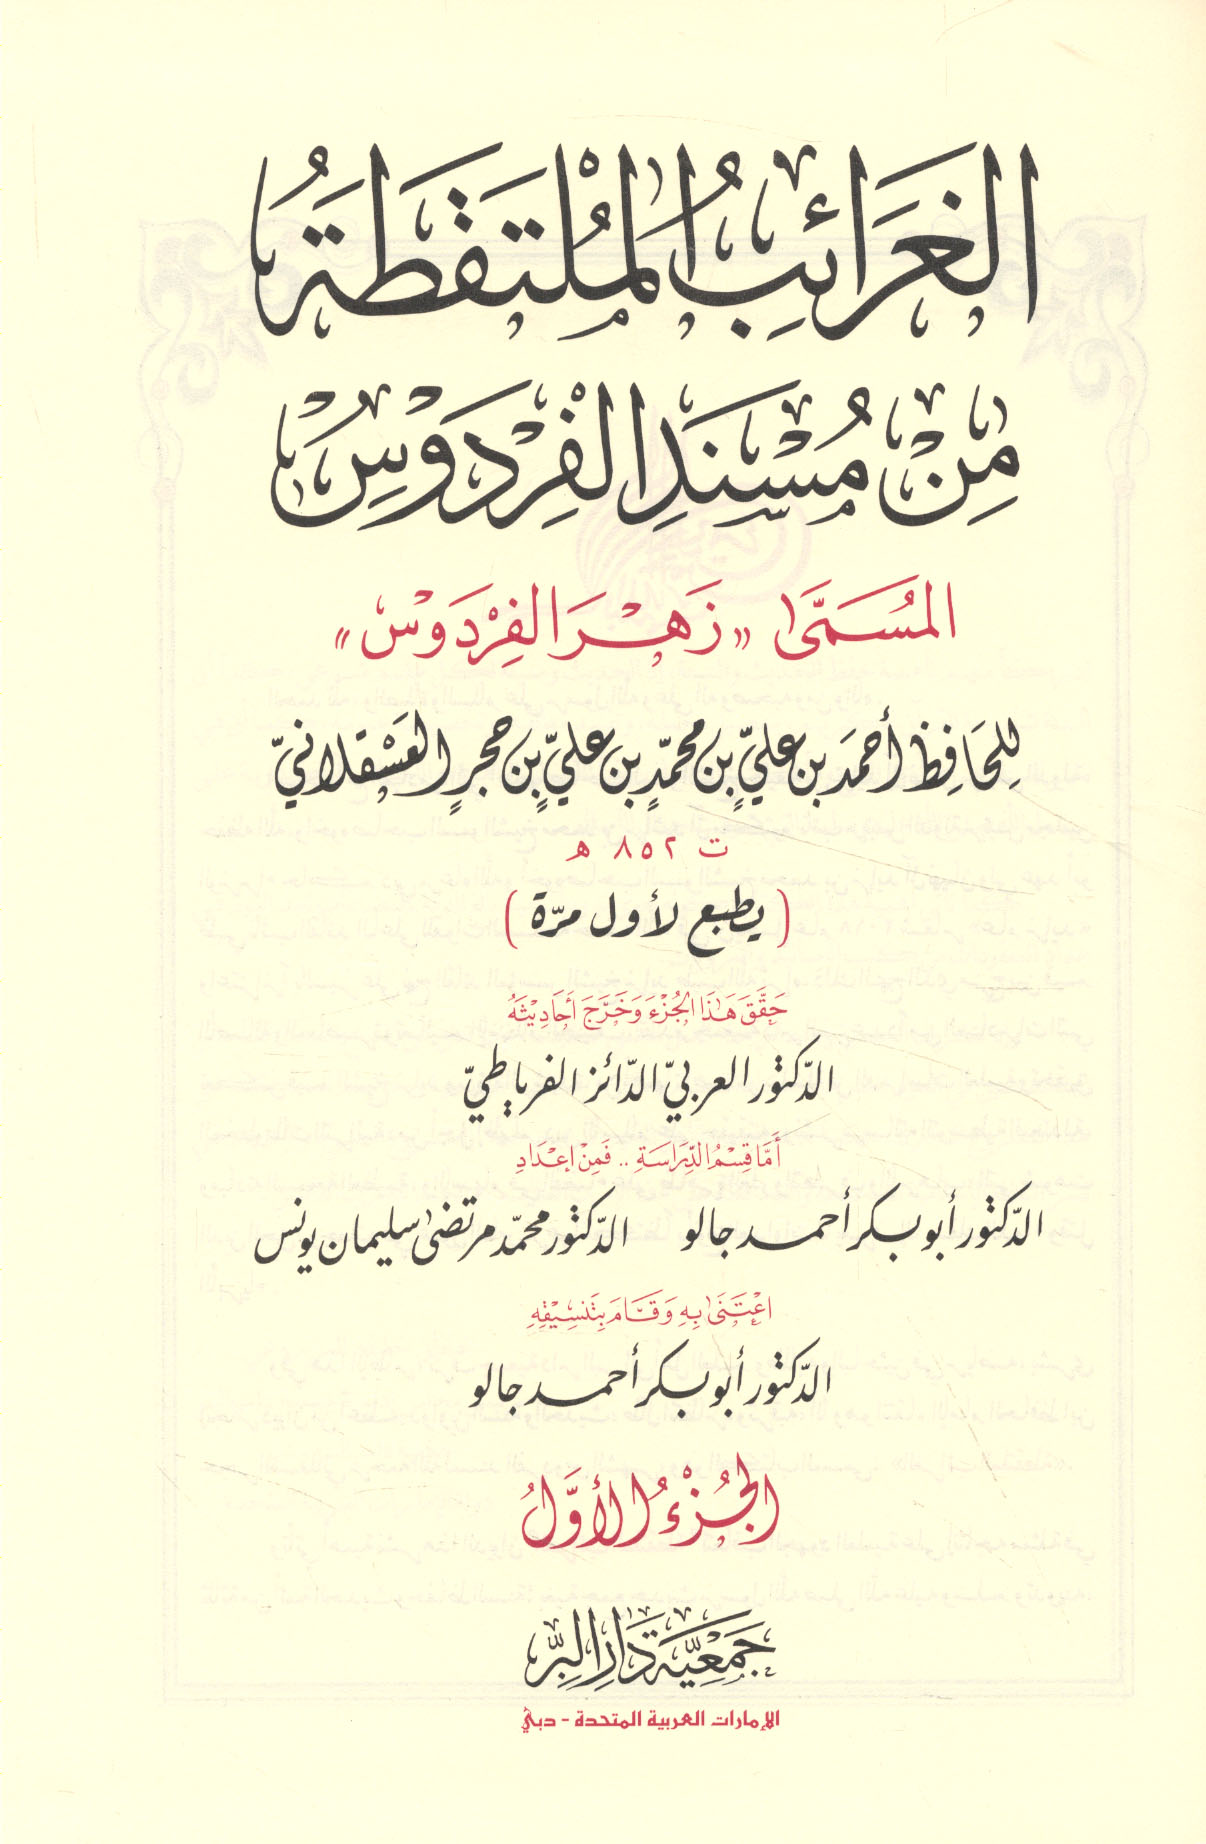 الغَرَائِبُ المُلْتَقَطَةُ
مِنْ مُسْنَدِ الفِرْدَوْسِ
المُسَمَّىٰ «زَهْرَ الفِرْدَوْسِ»
لِلحَافِظِ أَحمَدَ بن عَليٍّ بن محمّدٍ بن عَليٍّ بن حجرٍ العَسْقلانيّ
ت ٨٥٢ هـ
(يطبع لأول مرّة)
حَقَّقَ هَٰذَا الجُزْءَ وَخَرَّجَ أَحَادِيْثَهُ
الدّكتور العربيّ الدّائز الفرياطيّ
أَمَّا قِسْمُ الدِّرَاسَةِ .. فَمِنْ إِعْدَادِ
الدّكتور أبو بكر أحمد جالو الدّكتور محمّد مرتضىٰ سليمان يونس
اعْتَنَىٰ بِهِ وَقَامَ بِتَنْسِيْقِهِ
الدّكتور أبو بكر أحمد جالو
الجُزْءُ الأَوَّلُ
جَمْعِيَّة دَارِ البِرِّ
الإمارات العربية المتحدة - دبي